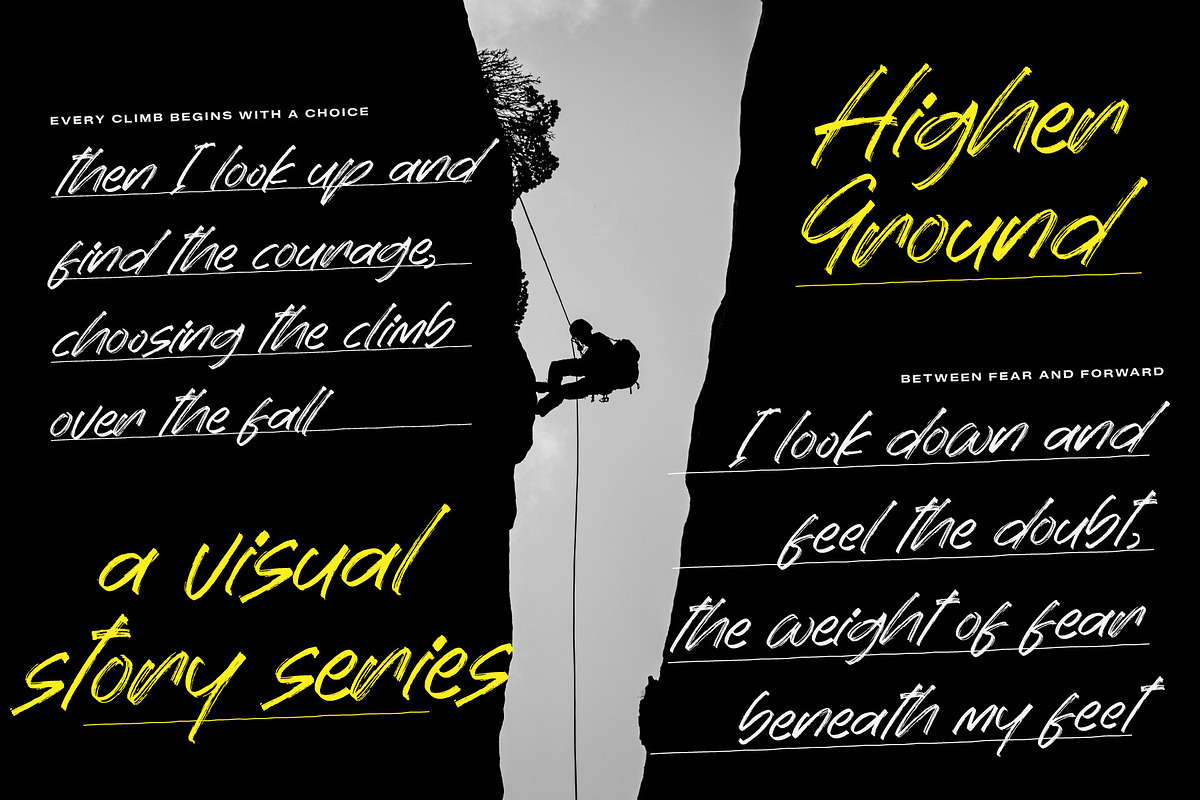 EVERY CLIMB BEGINS WITH A CHOICE
then I look up and
find the courage,
choosing the climb
over the fall
a visual
story series
Higher
Ground
BETWEEN FEAR AND FORWARD
I look down and
feel the doubt,
the weight of fear
beneath my feet